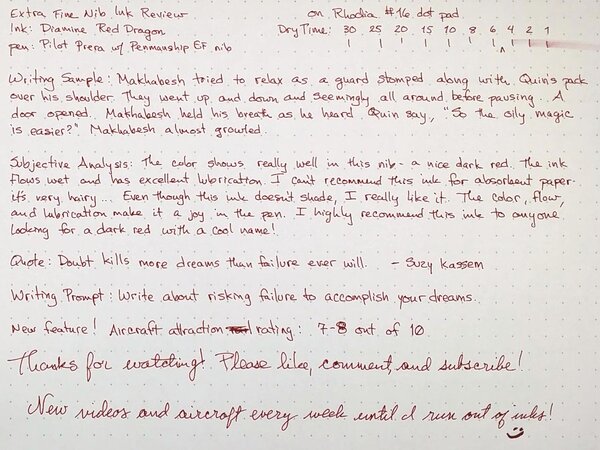 Extra Fine Nib Ink Review on Rhodia #16 dot pad
Ink: Diamine Red Dragon Dry Time: 30 25 20 15 10 8 6 4 2 1
pen: Pilot Prera w/ Penmanship EF nib
Writing Sample: Makhabesh tried to relax as a guard stomped along with Quin's pack
over his shoulder. They went up and down and seemingly all around before pausing... A
door opened. Makhabesh held his breath as he heard Quin say, "So the oily magic
is easier?" Makhabesh almost growled.
Subjective Analysis: The color shows really well in this nib - a nice dark red. The ink
flows wet and has excellent lubrication. I can't recommend this ink for absorbent paper-
it's very hairy... Even though this ink doesn't shade, I really like it. The color, flow,
and lubrication make it a joy in the pen. I highly recommend this ink to anyone
looking for a dark red with a cool name!
Quote: Doubt kills more dreams than failure ever will. - Suzy Kassem
Writing Prompt: Write about risking failure to accomplish your dreams.
New feature! Aircraft attraction rating: 7-8 out of 10
Thanks for watching! Please like, comment, and subscribe!
New videos and aircraft every week until I run out of inks!